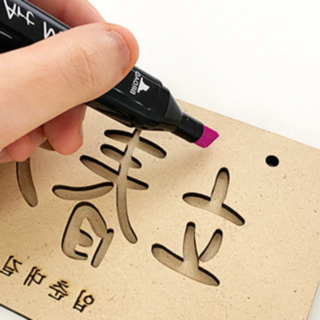 立春
입춘대길